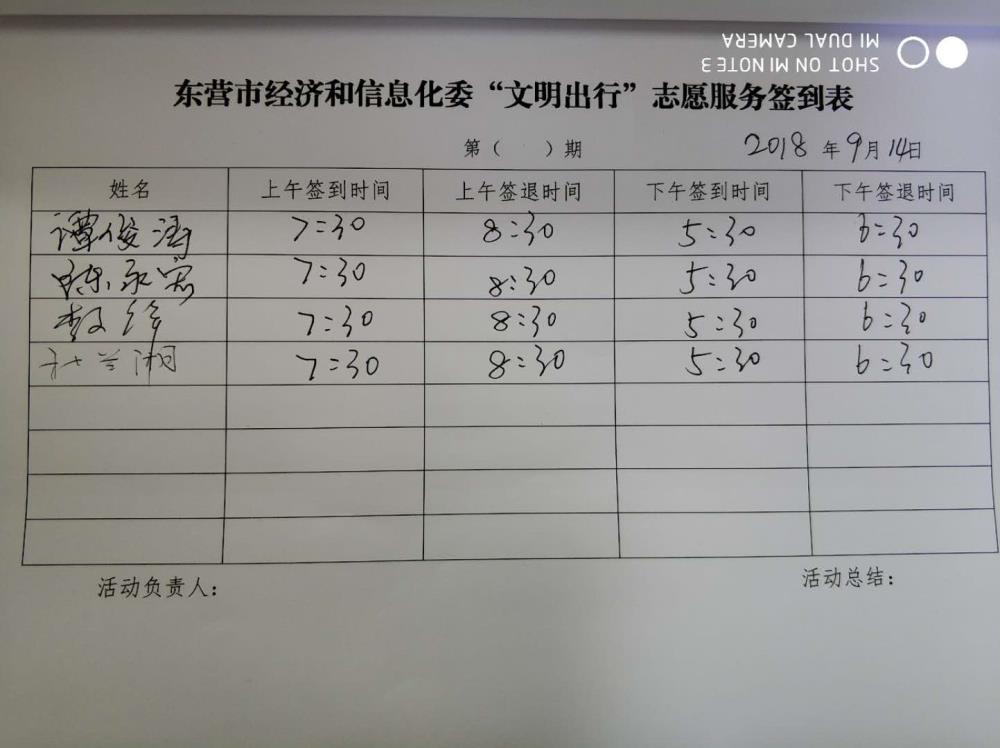 SHOT ON MI NOTE 3
MI DUAL CAMERA
东营市经济和信息化委“文明出行”志愿服务签到表
第（ ）期 2018年9月14日
姓名 上午签到时间 上午签退时间 下午签到时间 下午签退时间
谭俊涛 7:30 8:30 5:30 6:30
陈永 7:30 8:30 5:30 6:30
7:30 8:30 5:30 6:30
兰湘 7:30 8:30 5:30 6:30
活动负责人： 活动总结：